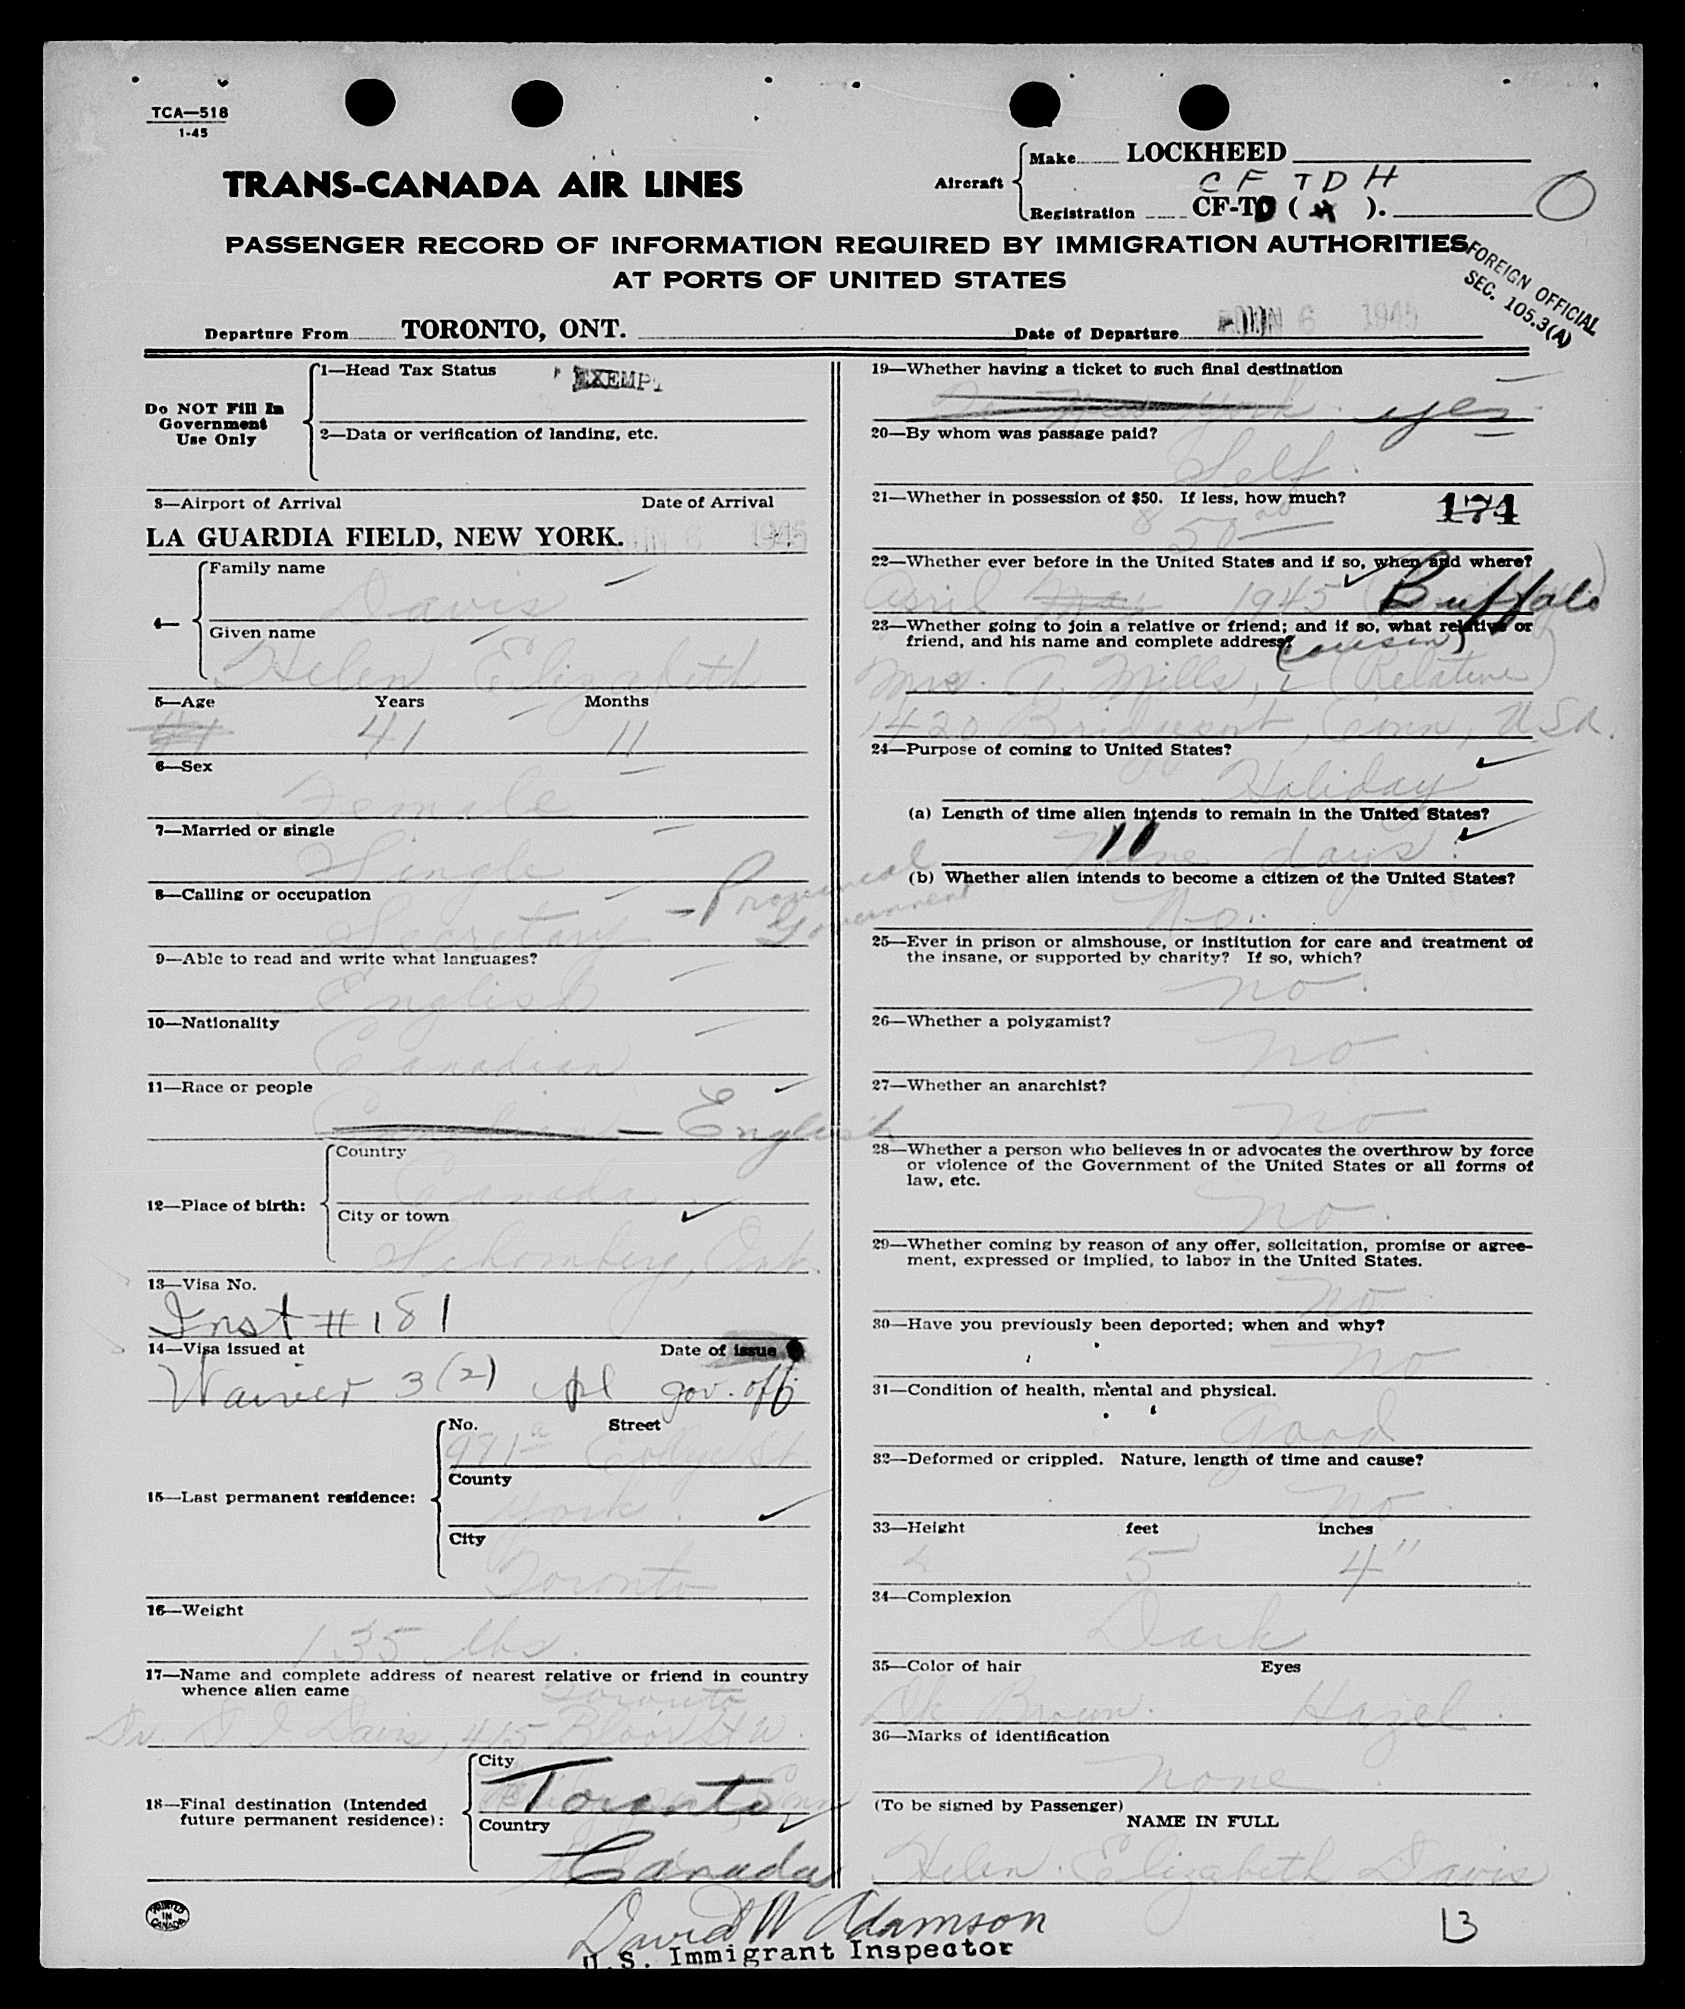 TCA—518
1-45
TRANS-CANADA AIR LINES
Aircraft
Make LOCKHEED
CF TDH
Registration CF-TD ( ).
O
PASSENGER RECORD OF INFORMATION REQUIRED BY IMMIGRATION AUTHORITIES
AT PORTS OF UNITED STATES
FOREIGN OFFICIAL
SEC. 105.3(A)
Departure From TORONTO, ONT.
Date of Departure JUN 6 1945
Do NOT Fill In
Government
Use Only
1—Head Tax Status EXEMPT
2—Data or verification of landing, etc.
3—Airport of Arrival Date of Arrival
LA GUARDIA FIELD, NEW YORK. JUN 6 1945
4—
Family name
Davis
Given name
Helen Elizabeth
5—Age Years Months
41 11
6—Sex
Female
7—Married or single
Single
8—Calling or occupation
Secretary - Provincial Government
9—Able to read and write what languages?
English
10—Nationality
Canadian
11—Race or people
Canadian — English
12—Place of birth:
Country
Canada
City or town
Schomberg, Ont.
13—Visa No.
Inst # 181
14—Visa issued at Date of issue
Waiver 3 (2) gov. off
15—Last permanent residence:
No. Street
971a College St.
County
York.
City
Toronto
16—Weight
135 lbs.
17—Name and complete address of nearest relative or friend in country
whence alien came
Toronto
Dr Davis, 415 Bloor St W.
18—Final destination (Intended
future permanent residence):
City
Toronto
Country
Canada
19—Whether having a ticket to such final destination
To New York. yes
20—By whom was passage paid?
Self.
21—Whether in possession of $50. If less, how much?
$50.00
174
22—Whether ever before in the United States and if so, when and where?
April May 1945 Buffalo
23—Whether going to join a relative or friend; and if so, what relative or
friend, and his name and complete address?
(cousin)
Mrs. A. Mills, (Relative)
1420 Bridgeport, Conn, U.S.A.
24—Purpose of coming to United States?
Holiday
(a) Length of time alien intends to remain in the United States?
11 Nine days.
(b) Whether alien intends to become a citizen of the United States?
No.
25—Ever in prison or almshouse, or institution for care and treatment of
the insane, or supported by charity? If so, which?
no.
26—Whether a polygamist?
no.
27—Whether an anarchist?
no
28—Whether a person who believes in or advocates the overthrow by force
or violence of the Government of the United States or all forms of
law, etc.
no.
29—Whether coming by reason of any offer, solicitation, promise or agree-
ment, expressed or implied, to labor in the United States.
no.
30—Have you previously been deported; when and why?
no
31—Condition of health, mental and physical.
good
32—Deformed or crippled. Nature, length of time and cause?
no.
33—Height feet inches
5 4"
34—Complexion
Dark
35—Color of hair Eyes
Dk Brown. Hazel.
36—Marks of identification
none.
(To be signed by Passenger)
NAME IN FULL
Helen Elizabeth Davis
PRINTED
IN
CANADA
David W Adamson
U.S. Immigrant Inspector
13